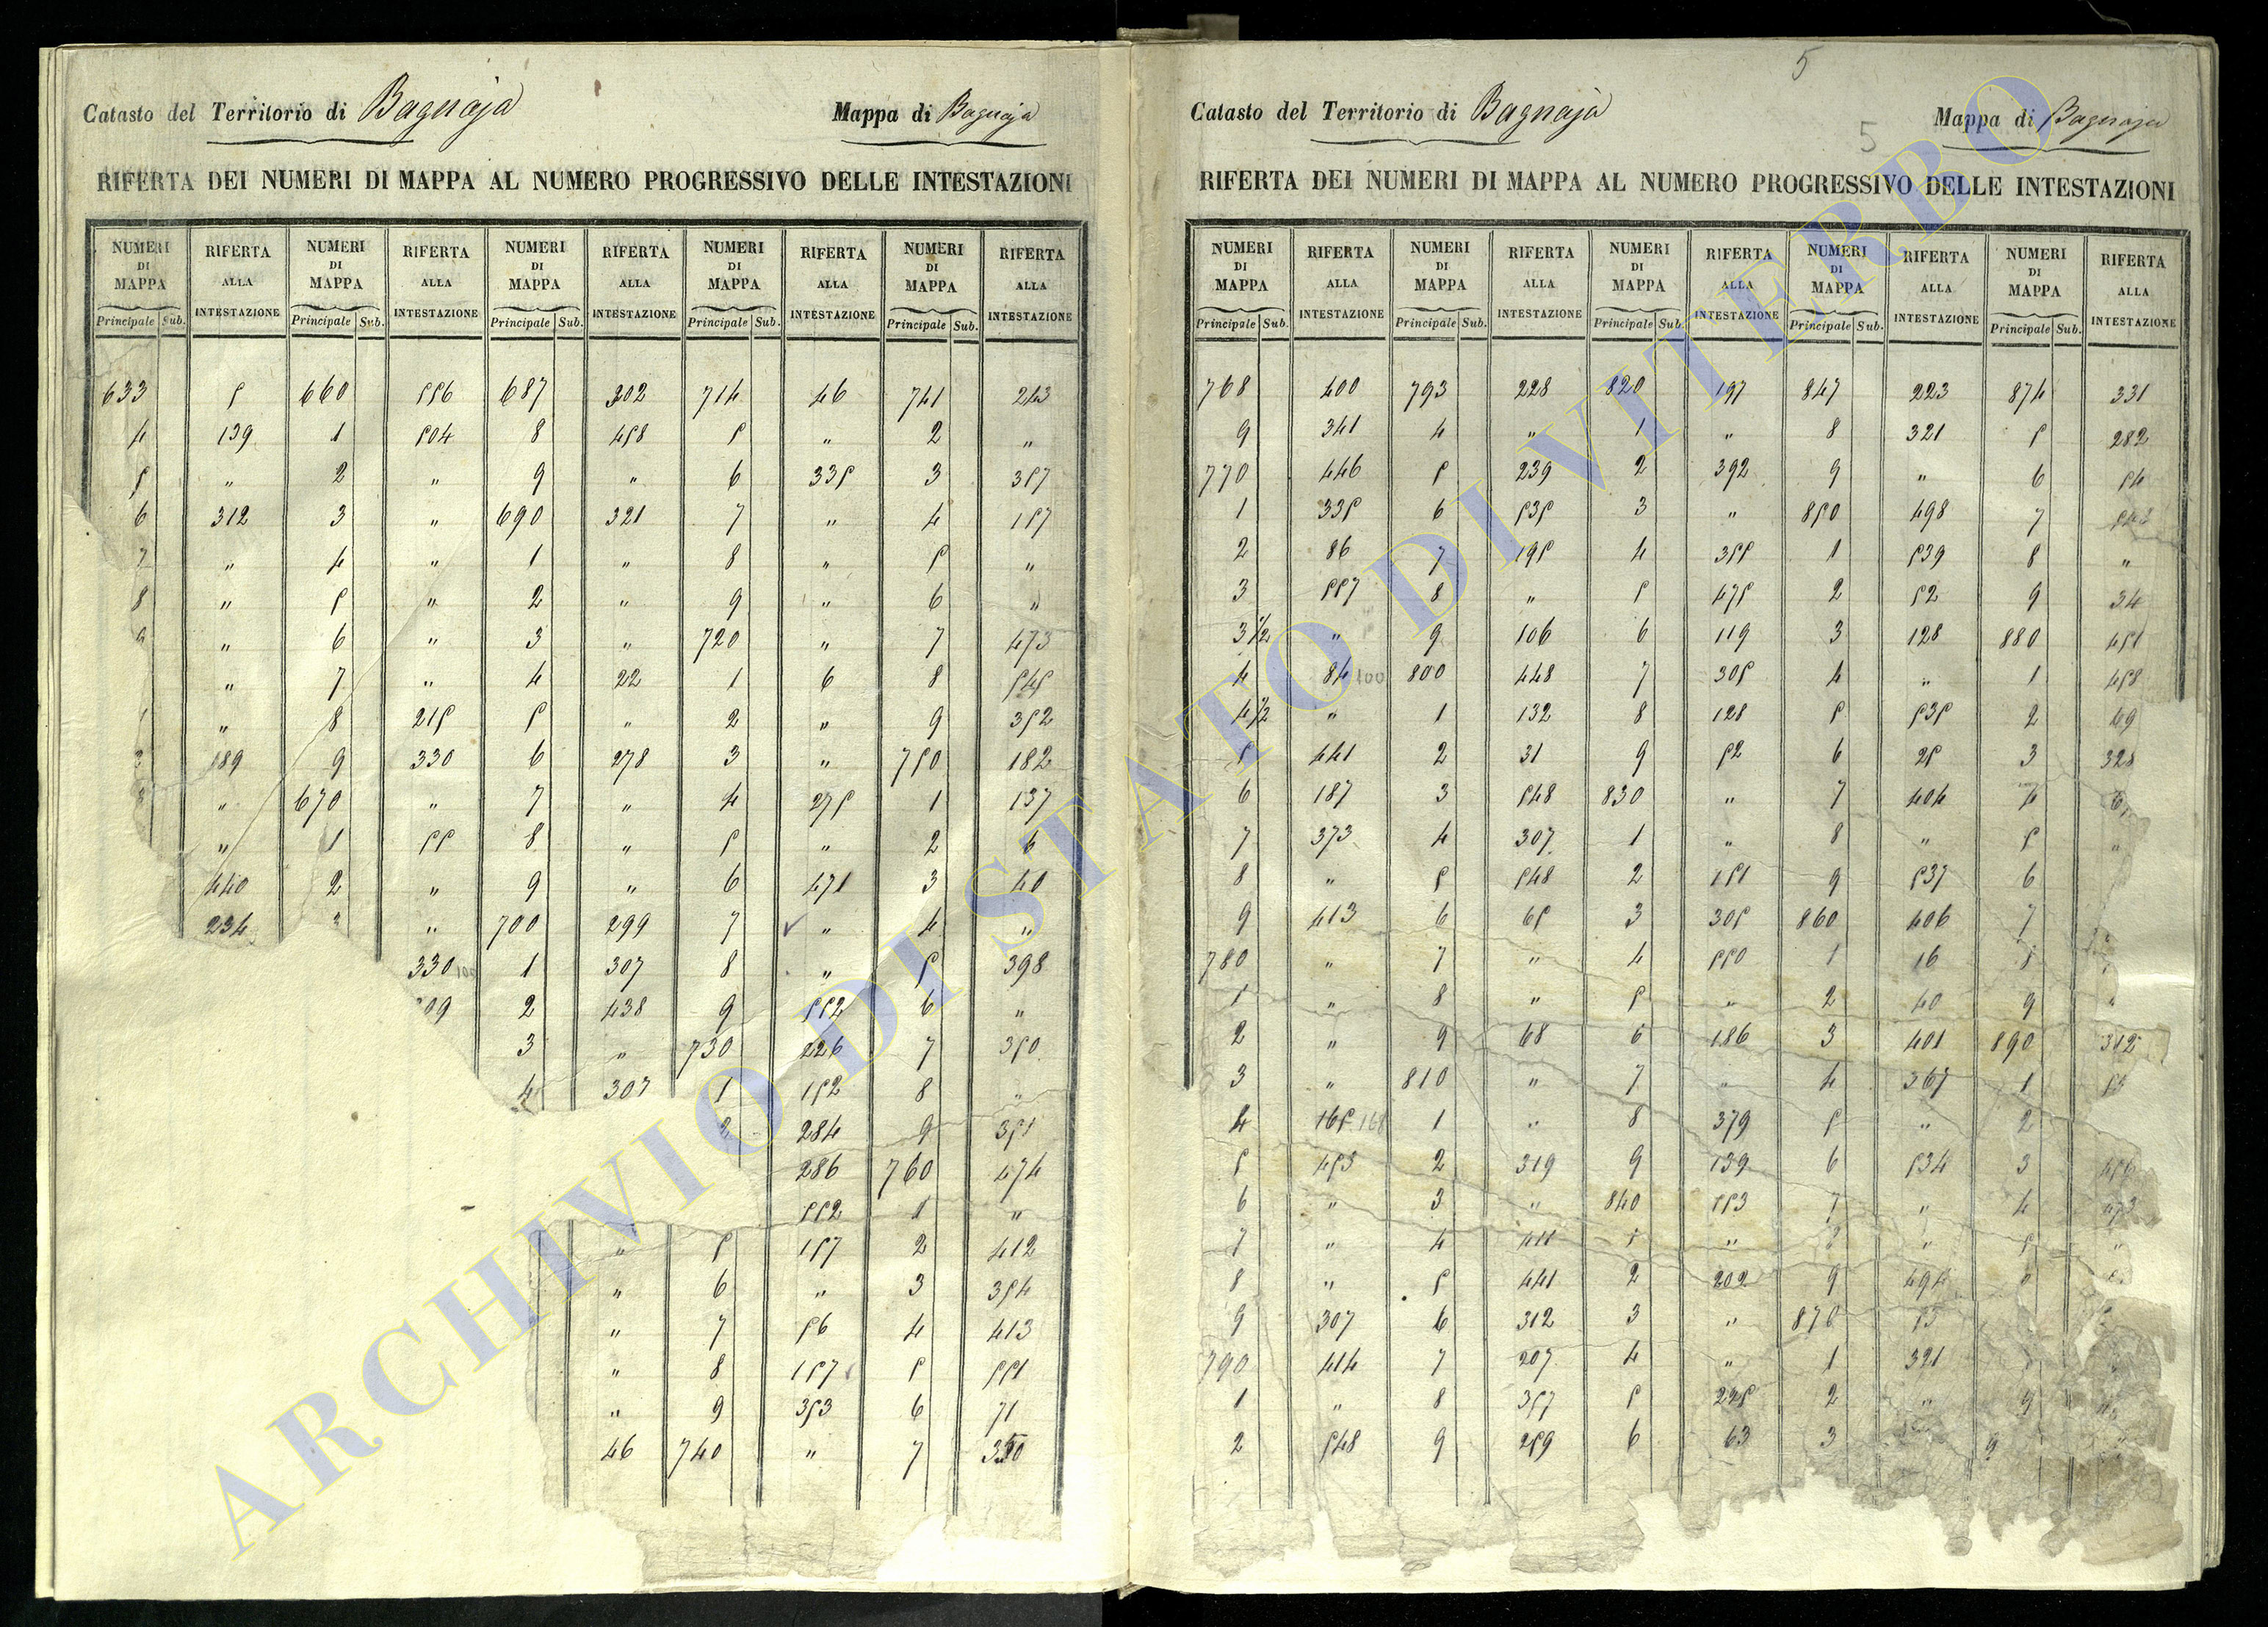 Catasto del Territorio di Bagnaja Mappa di Bagnaja
RIFERTA DEI NUMERI DI MAPPA AL NUMERO PROGRESSIVO DELLE INTESTAZIONI
NUMERI DI MAPPA RIFERTA ALLA INTESTAZIONE NUMERI DI MAPPA RIFERTA ALLA INTESTAZIONE NUMERI DI MAPPA RIFERTA ALLA INTESTAZIONE NUMERI DI MAPPA RIFERTA ALLA INTESTAZIONE NUMERI DI MAPPA RIFERTA ALLA INTESTAZIONE
Principale Sub. Principale Sub. Principale Sub. Principale Sub. Principale Sub.
633 5 660 556 687 302 714 46 741 243
4 139 1 504 8 458 5 " 2 "
5 " 2 " 9 " 6 335 3 357
6 312 3 " 690 321 7 " 4 157
7 " 4 " 1 " 8 " 5 "
8 " 5 " 2 " 9 " 6 "
9 " 6 " 3 " 720 " 7 473
" 7 " 4 22 1 6 8 545
1 " 8 215 5 " 2 " 9 352
2 189 9 330 6 278 3 " 750 182
3 " 670 " 7 " 4 275 1 137
" 1 55 8 " 5 " 2 6
440 2 " 9 " 6 471 3 40
234 " 700 299 7 " 4 "
330 1 307 8 " 5 398
09 2 438 9 552 6 "
3 " 730 226 7 350
4 307 1 152 8 "
2 284 9 351
286 760 474
552 1 "
" 5 157 2 412
" 6 " 3 354
" 7 56 4 413
" 8 157 5 551
" 9 353 6 71
46 740 " 7 350
5
5
Catasto del Territorio di Bagnaja Mappa di Bagnaja
RIFERTA DEI NUMERI DI MAPPA AL NUMERO PROGRESSIVO DELLE INTESTAZIONI
NUMERI DI MAPPA RIFERTA ALLA INTESTAZIONE NUMERI DI MAPPA RIFERTA ALLA INTESTAZIONE NUMERI DI MAPPA RIFERTA ALLA INTESTAZIONE NUMERI DI MAPPA RIFERTA ALLA INTESTAZIONE NUMERI DI MAPPA RIFERTA ALLA INTESTAZIONE
Principale Sub. Principale Sub. Principale Sub. Principale Sub. Principale Sub.
768 400 793 228 820 197 847 223 874 331
9 341 4 " 1 " 8 321 5 282
770 446 5 239 2 392 9 " 6 54
1 335 6 535 3 " 850 498 7
2 86 7 195 4 355 1 539 8 "
3 557 8 " 5 475 2 52 9 34
3 1/2 " 9 106 6 119 3 128 880 451
4 84 100 800 448 7 305 4 " 1 458
4 1/2 " 1 132 8 128 5 535 2 49
5 441 2 31 9 52 6 25 3 328
6 187 3 548 830 " 7 404 4
7 373 4 307 1 " 8 " 5 "
8 " 5 548 2 151 9 537 6
9 413 6 65 3 305 860 406 7
780 " 7 " 4 550 1 16 8
1 " 8 " 5 " 2 40 9
2 " 9 68 6 186 3 401 890 312
3 " 810 " 7 " 4 367 1
4 165 168 1 " 8 379 5 " 2
5 453 2 319 9 139 6 534 3
6 " 3 " 840 553 7 " 4 473
7 " 4 411 1 " 8 " 5 "
8 " 5 441 2 202 9 494
9 307 6 312 3 " 870
790 414 7 207 4 " 1 321
1 " 8 357 5 2 " 9
2 548 9 259 6 63 3
ARCHIVIO DI STATO DI VITERBO